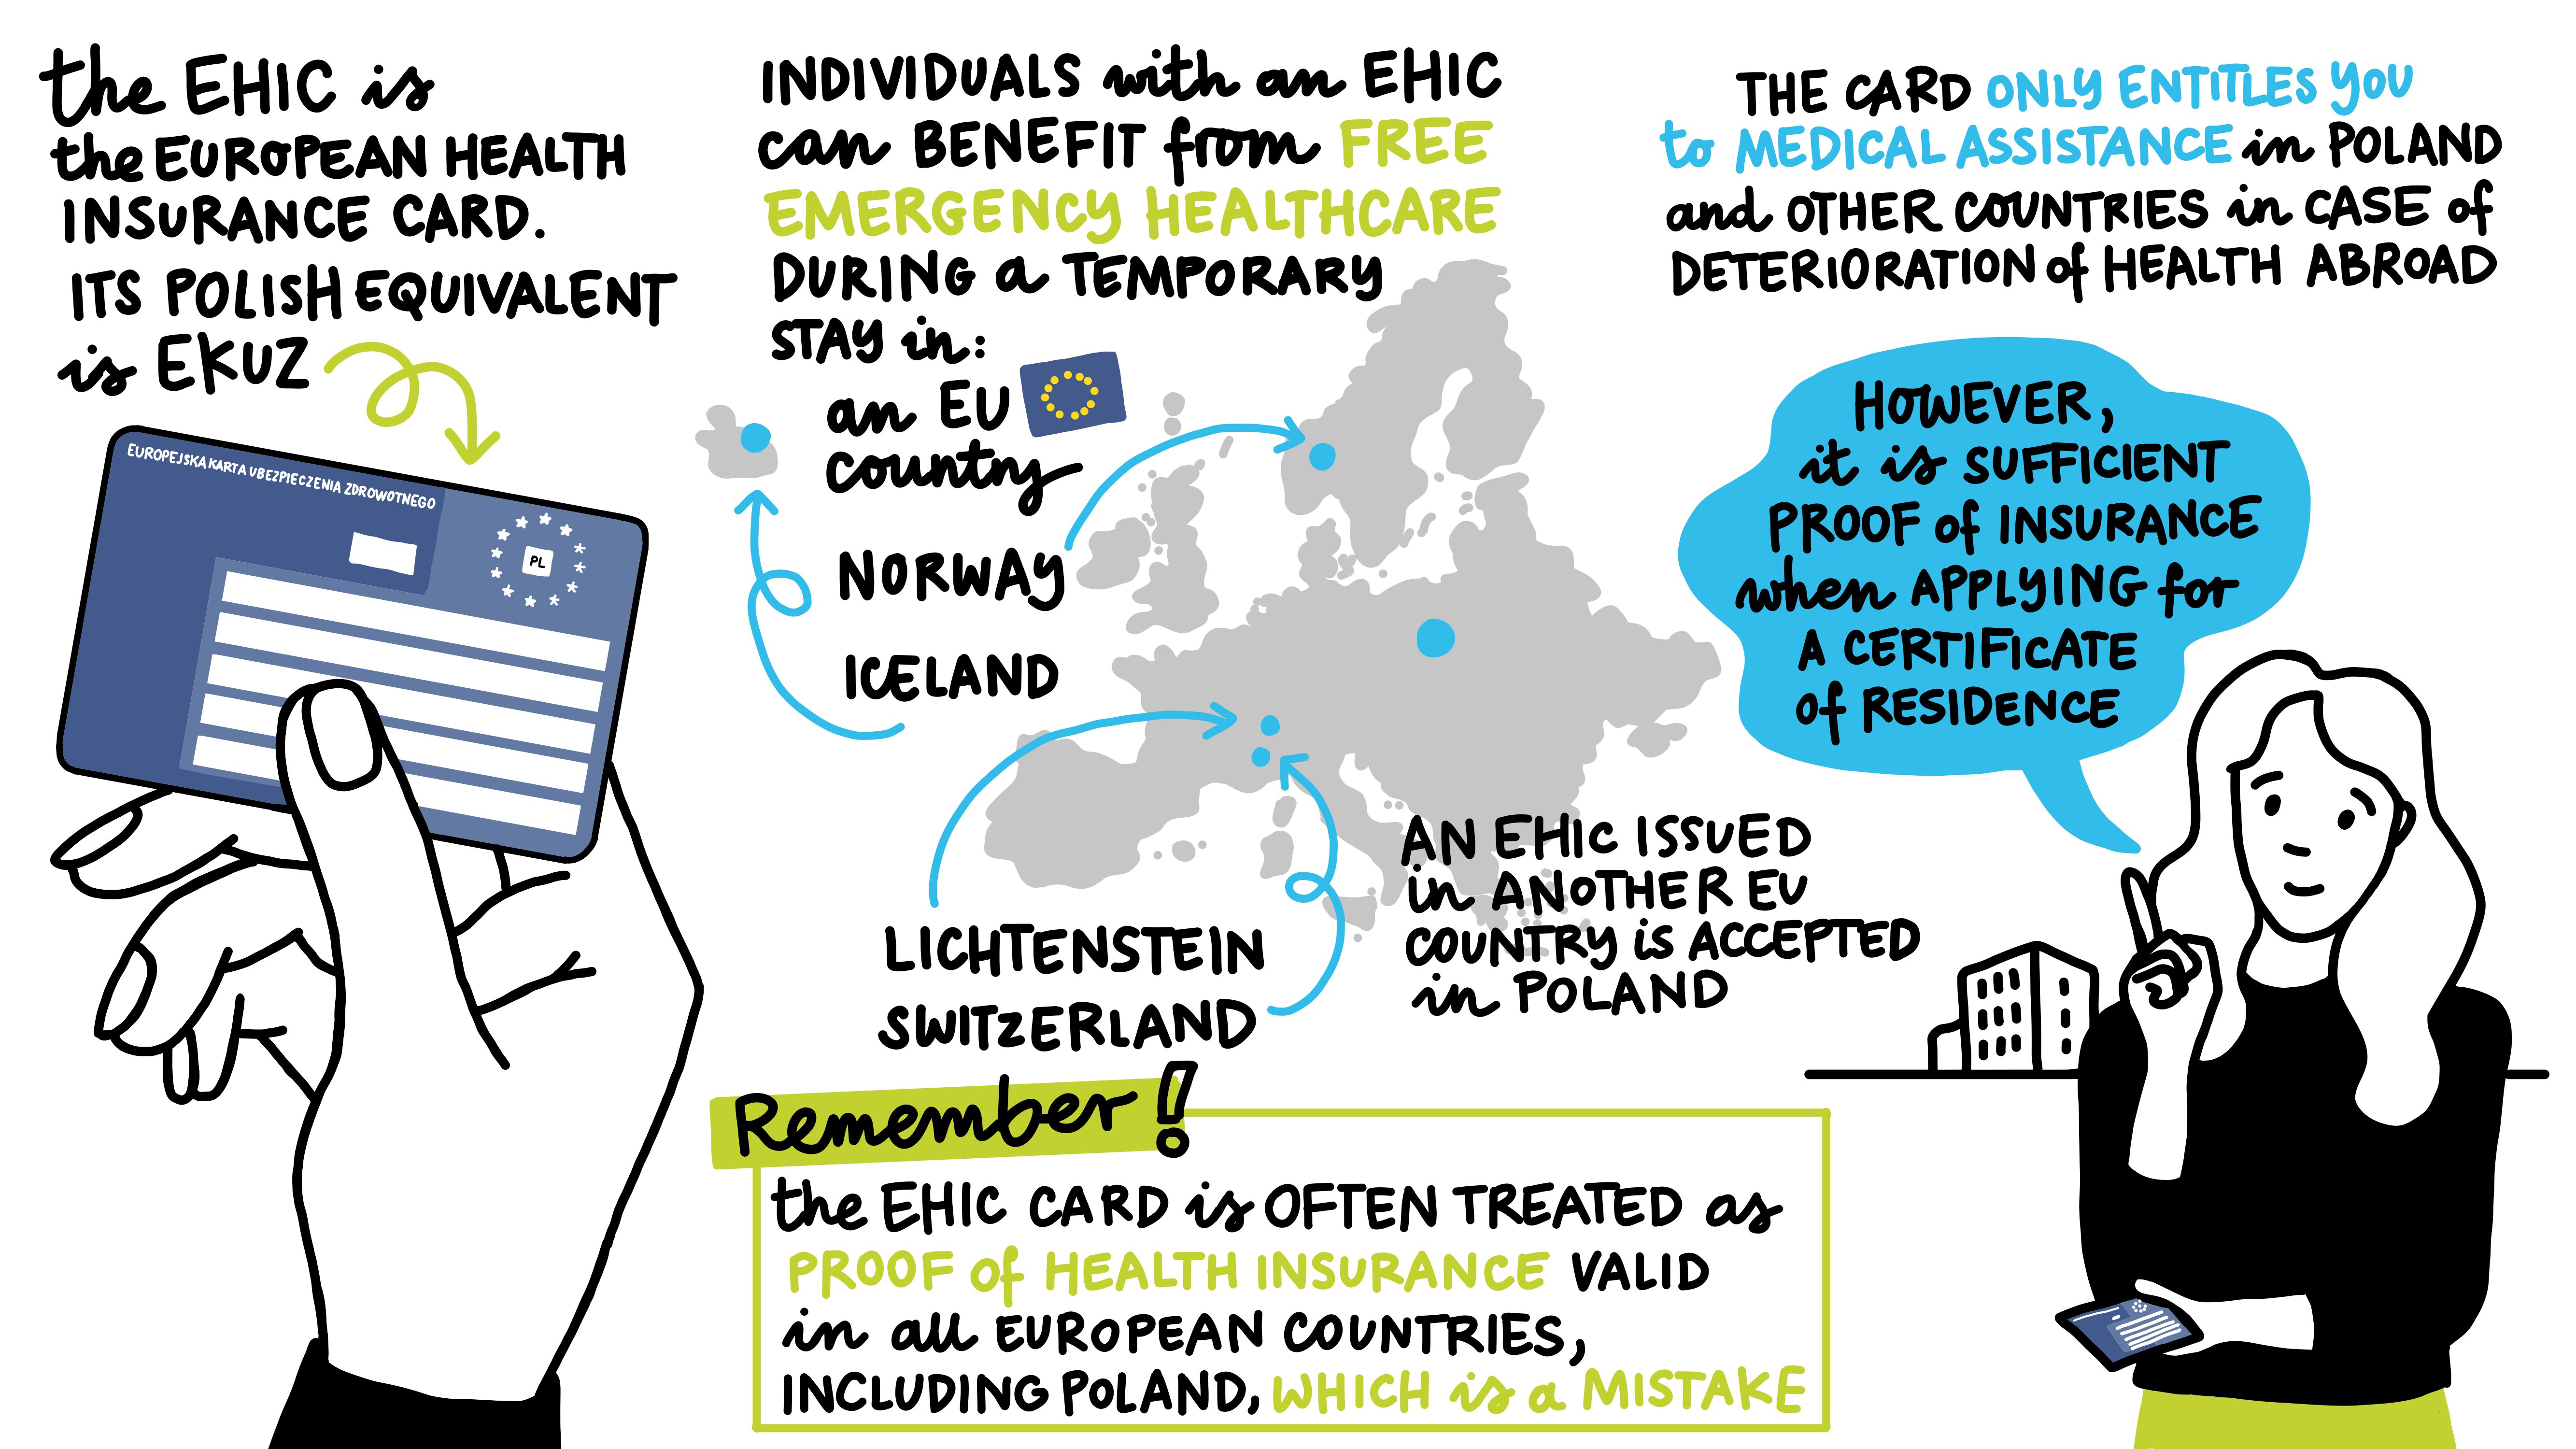 the EHIC is
the EUROPEAN HEALTH
INSURANCE CARD.
ITS POLISH EQUIVALENT
is EKUZ
EUROPEJSKA KARTA UBEZPIECZENIA ZDROWOTNEGO
PL
INDIVIDUALS with an EHIC
can BENEFIT from FREE
EMERGENCY HEALTHCARE
DURING a TEMPORARY
STAY in:
an EU
country
NORWAY
ICELAND
LICHTENSTEIN
SWITZERLAND
AN EHIC ISSUED
in ANOTHER EU
COUNTRY is ACCEPTED
in POLAND
Remember!
the EHIC CARD is OFTEN TREATED as
PROOF of HEALTH INSURANCE VALID
in all EUROPEAN COUNTRIES,
INCLUDING POLAND, WHICH is a MISTAKE
THE CARD ONLY ENTITLES YOU
to MEDICAL ASSISTANCE in POLAND
and OTHER COUNTRIES in CASE of
DETERIORATION of HEALTH ABROAD
HOWEVER,
it is SUFFICIENT
PROOF of INSURANCE
when APPLYING for
A CERTIFICATE
of RESIDENCE